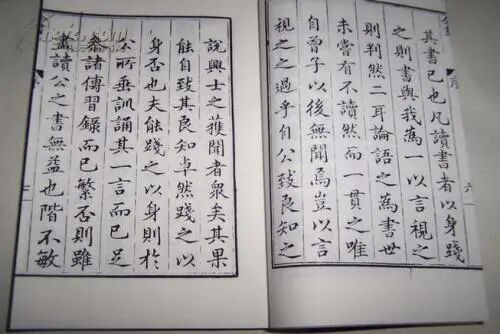 序
六
其書已也凡讀書者以身踐
之則書與我為一以言視之
則判然二耳論語之為書世
未嘗有不讀然而一貫之唯
自曾子以後無聞焉豈以言
視之之過乎自公致良知之
說興士之獲聞者衆矣其果
能自致其良知卓然踐之以
身否也夫能踐之以身則於
公所垂訓誦其一言而已足
參諸傳習錄而已繁否則雖
盡讀公之書無益也階不敏